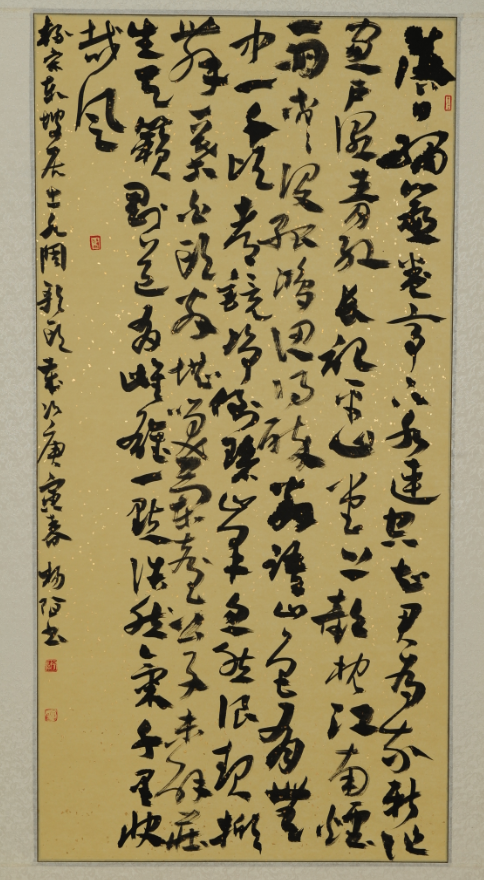 落日繡簾卷亭下水連空知君為我新作
窗戶濕青紅長記平山堂上欹枕江南煙
雨杳杳沒孤鴻認得醉翁語山色有無
中一千頃都鏡淨倒碧峰忽然浪起掀
舞一葉白頭翁堪笑蘭臺公子未解莊
生天籟剛道有雌雄一點浩然氣千里快
哉風
宋東坡居士水調歌頭歲次庚寅春楊書